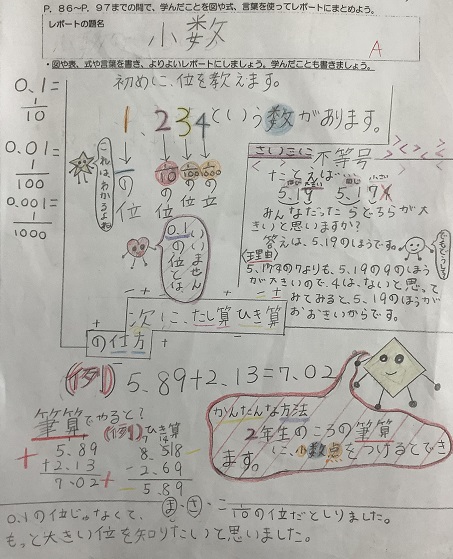 P. 86～P. 97までの間で、学んだことを図や式、言葉を使ってレポートにまとめよう。
レポートの題名
小数
A
・図や表、式や言葉を書き、よりよいレポートにしましょう。学んだことも書きましょう。
初めに、位を教えます。
0.1=
1/10
0.01=
1/100
0.001=
1/1000
1.234という数があります。
これはわかるよね
一の位
1/10の位
1/100の位
1/1000の位
0.1の位とはいいません
さいごに不等号
たとえば…
5.19 5.17
みんなだったらどちらが大
きいと思いますか?
答えは、5.19のほうです。
でもどうして
〈理由〉
が大きいので、4は、ないと思って
みてみると、5.19のほうが
おおきいからです。
次に、たし算ひき算
の仕方
(例) 5.89+2.13=7.02
筆算でやると?
(例)ひき算
5.89
+2.13
7.02
8.58
-2.69
5.89
かんたんな方法
2年生のころの筆算
に、小数点をつけるとでき
ます。
0.1の位じゃなくて、1/10の位だとしりました。
もっと大きい位を知りたいと思いました。